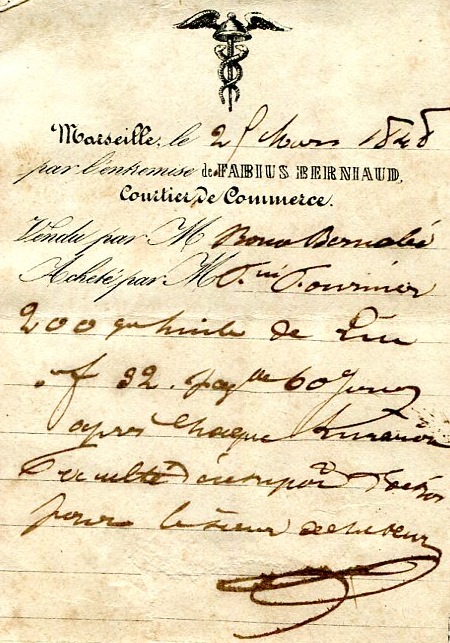 Marseille, le 2 Mars 1848
par l'entremise de FABIUS BERNIAUD,
Courtier de Commerce.
Vendu par M Roux Bernabé
Acheté par M Fournier
200 qx huile de Lin
f 92. pay de 60 jours
après chaque livraison
faculté d'entrepôt
pour le